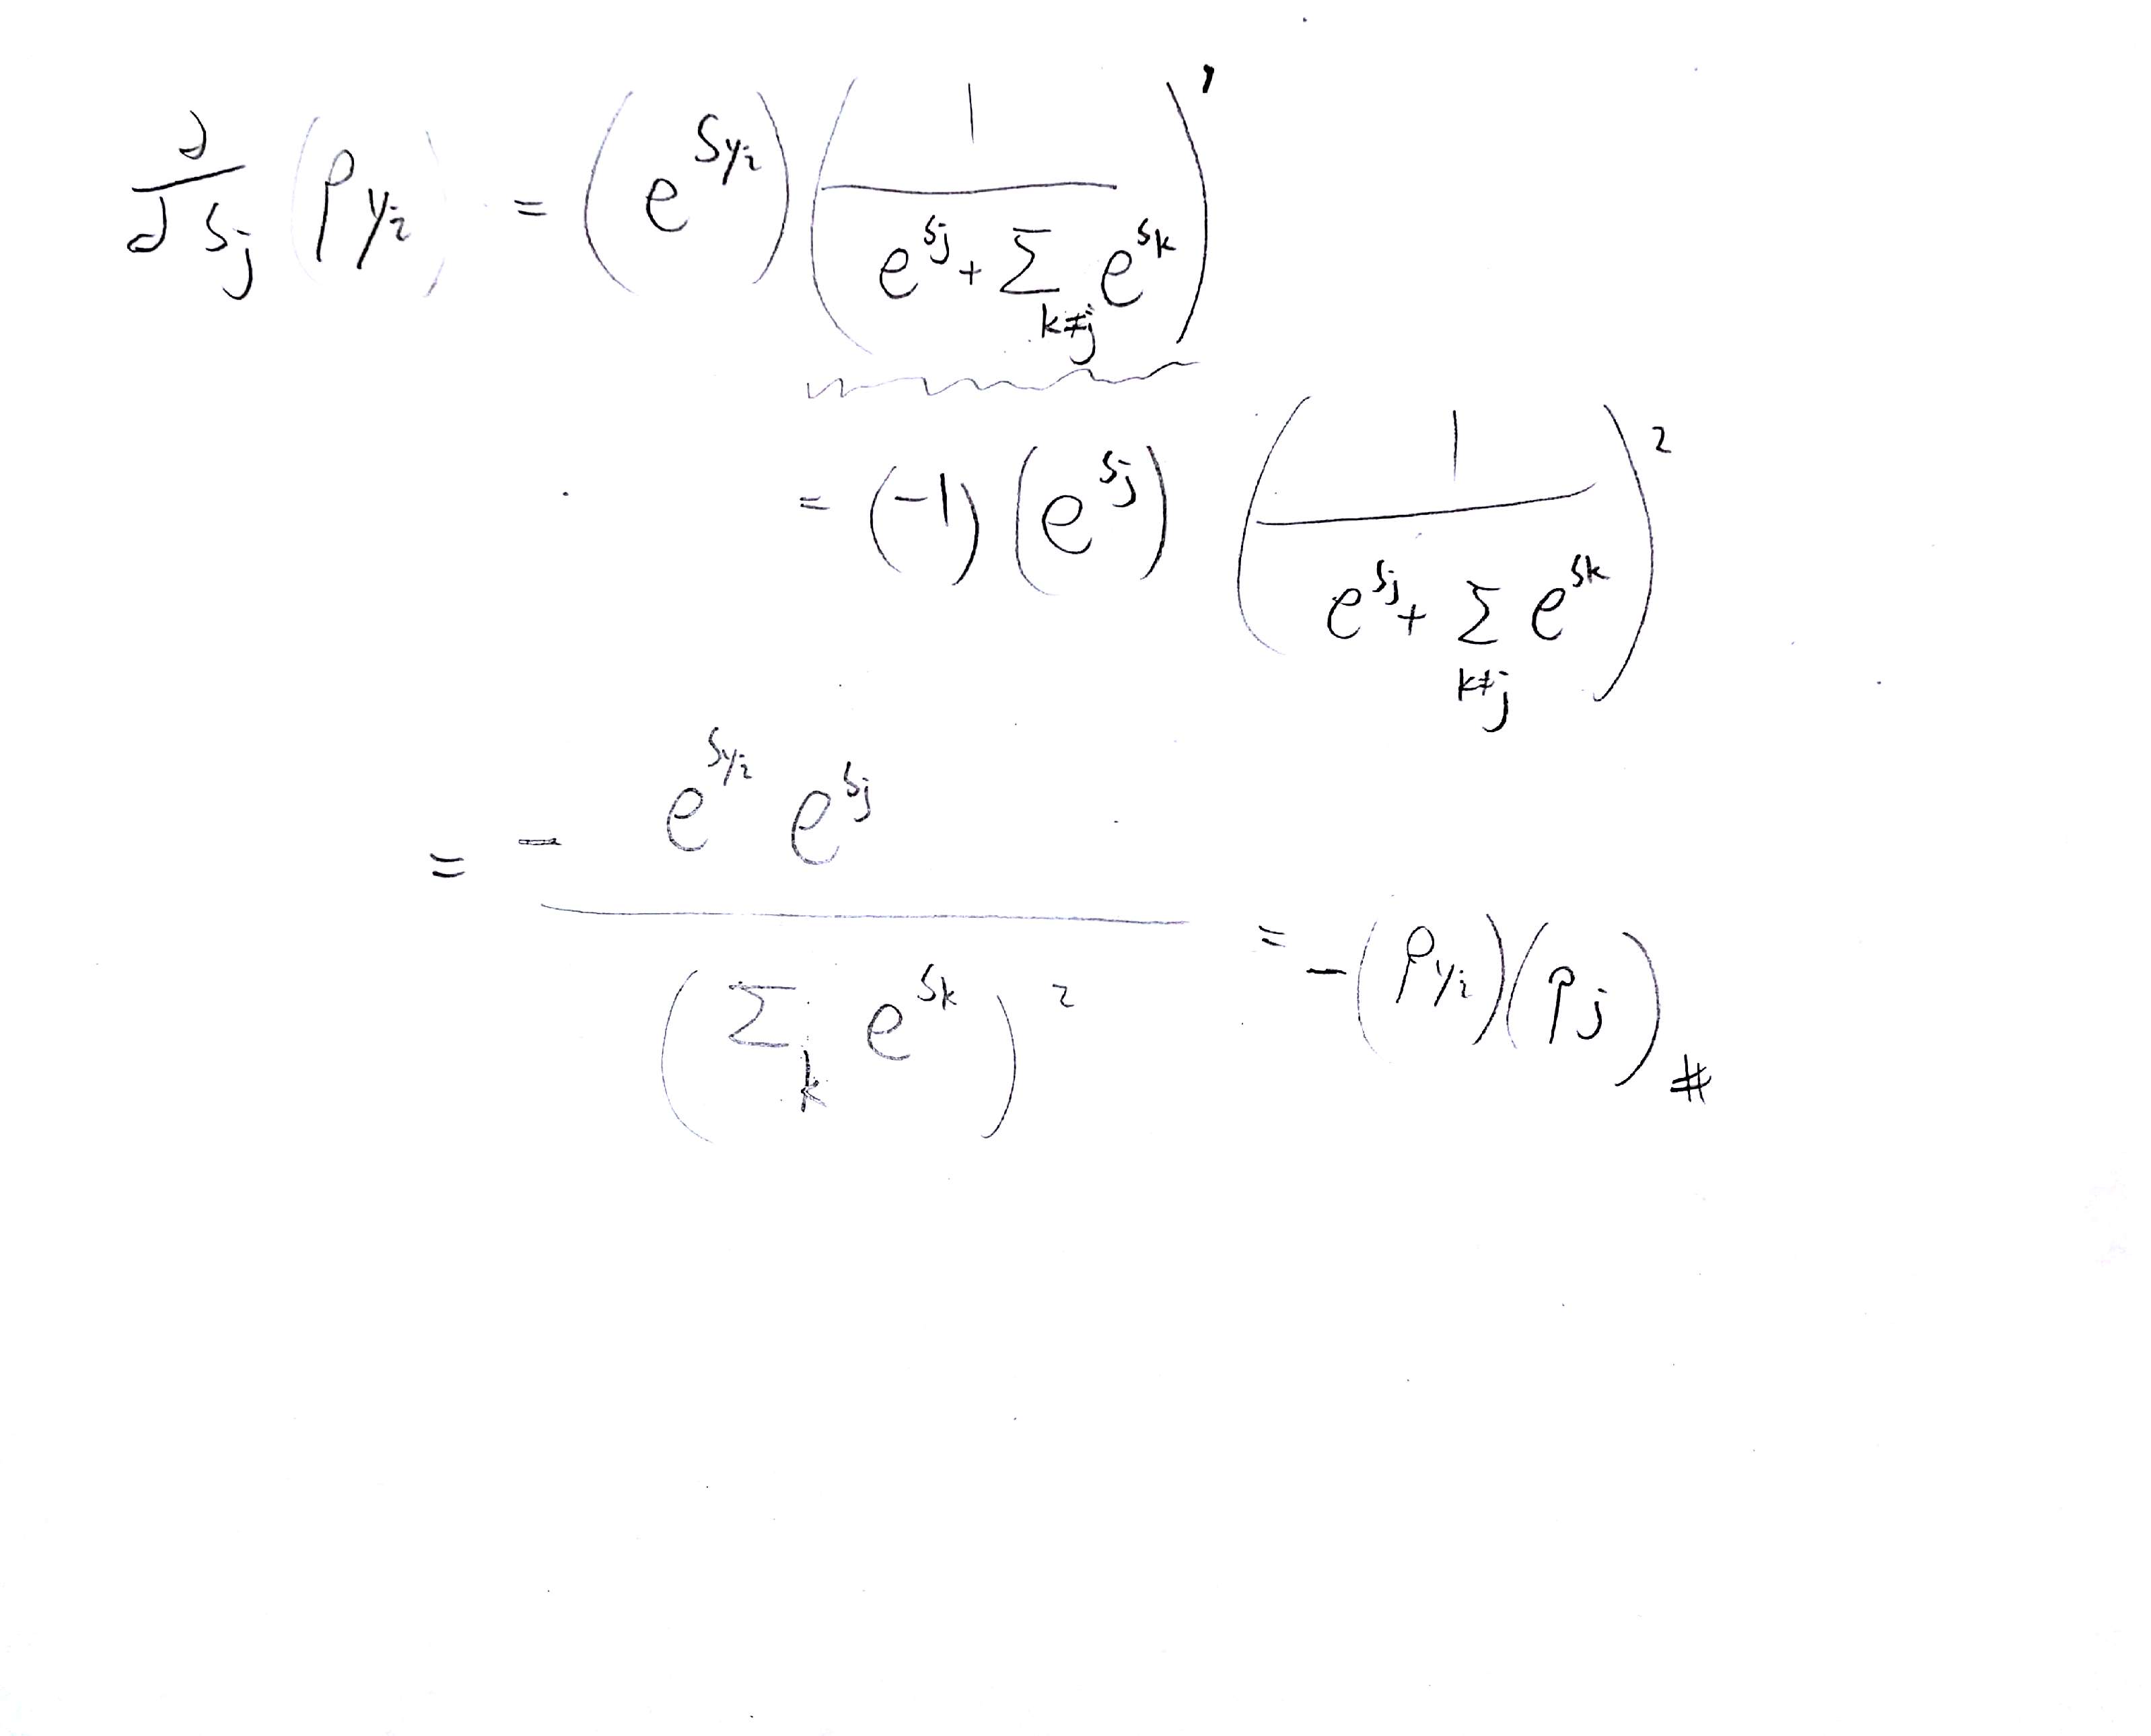 ∂/∂s_j (p_{y_i}) = (e^{s_{y_i}}) (1/(e^{s_j} + Σ_{k≠j} e^{s_k}))'
= (-1) (e^{s_j}) (1/(e^{s_j} + Σ_{k≠j} e^{s_k}))^2
= - e^{s_{y_i}} e^{s_j} / (Σ_k e^{s_k})^2 = -(p_{y_i})(p_j) #